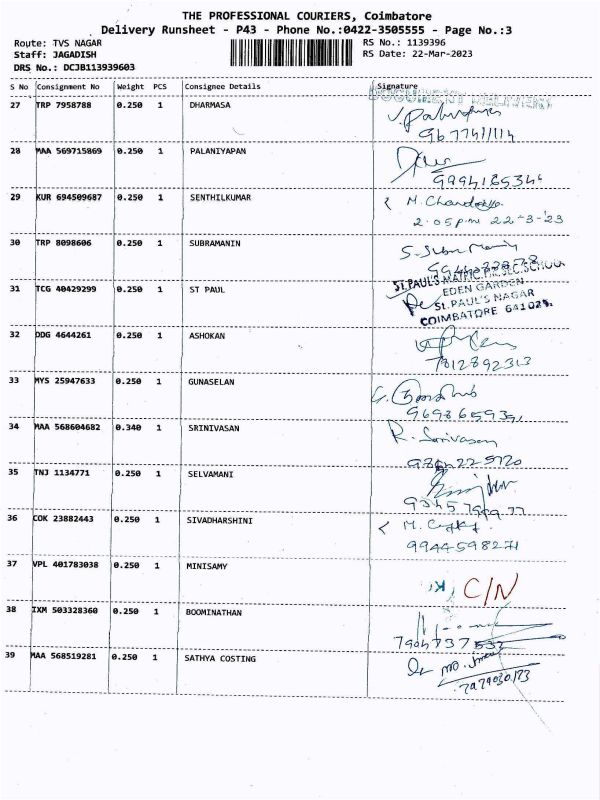 THE PROFESSIONAL COURIERS, Coimbatore
Delivery Runsheet - P43 - Phone No.:0422-3505555 - Page No.:3
Route: TVS NAGAR
Staff: JAGADISH
DRS No.: DCJB113939603
RS No.: 1139396
RS Date: 22-Mar-2023
S No Consignment No Weight PCS Consignee Details Signature
DOCUMENT DELIVERY
27 TRP 7958788 0.250 1 DHARMASA
28 MAA 569715869 0.250 1 PALANIYAPAN
29 KUR 694509687 0.250 1 SENTHILKUMAR
2.05pm 22-3-23
30 TRP 8098606 0.250 1 SUBRAMANIN
31 TCG 40429299 0.250 1 ST PAUL
ST.PAUL'S MATRIC.HR.SEC.SCHOOL
EDEN GARDEN
ST.PAUL'S NAGAR
COIMBATORE 641025.
32 DDG 4644261 0.250 1 ASHOKAN
7812892313
33 MYS 25947633 0.250 1 GUNASELAN
34 MAA 568604682 0.340 1 SRINIVASAN
R. Srinivasan
35 TNJ 1134771 0.250 1 SELVAMANI
36 COK 23882443 0.250 1 SIVADHARSHINI
9944598271
37 VPL 401783038 0.250 1 MINISAMY
C/N
38 IXM 503328360 0.250 1 BOOMINATHAN
7904737532
39 MAA 568519281 0.250 1 SATHYA COSTING